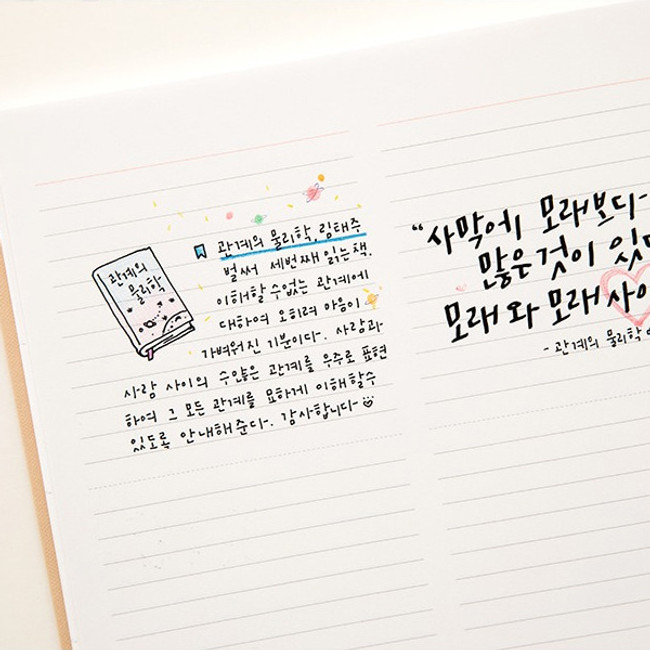 관계의
물리학
관계의 물리학, 림태주
벌써 세번째 읽는 책.
이해할 수 없는 관계에
대하여 오히려 마음이
가벼워진 기분이다. 사람과
사람 사이의 수많은 관계를 우주로 표현
하여 그 모든 관계를 묘하게 이해할 수
있도록 안내해준다. 감사합니다
"사막에 모래보다
많은 것이 있
모래와 모래 사이
- 관계의 물리학